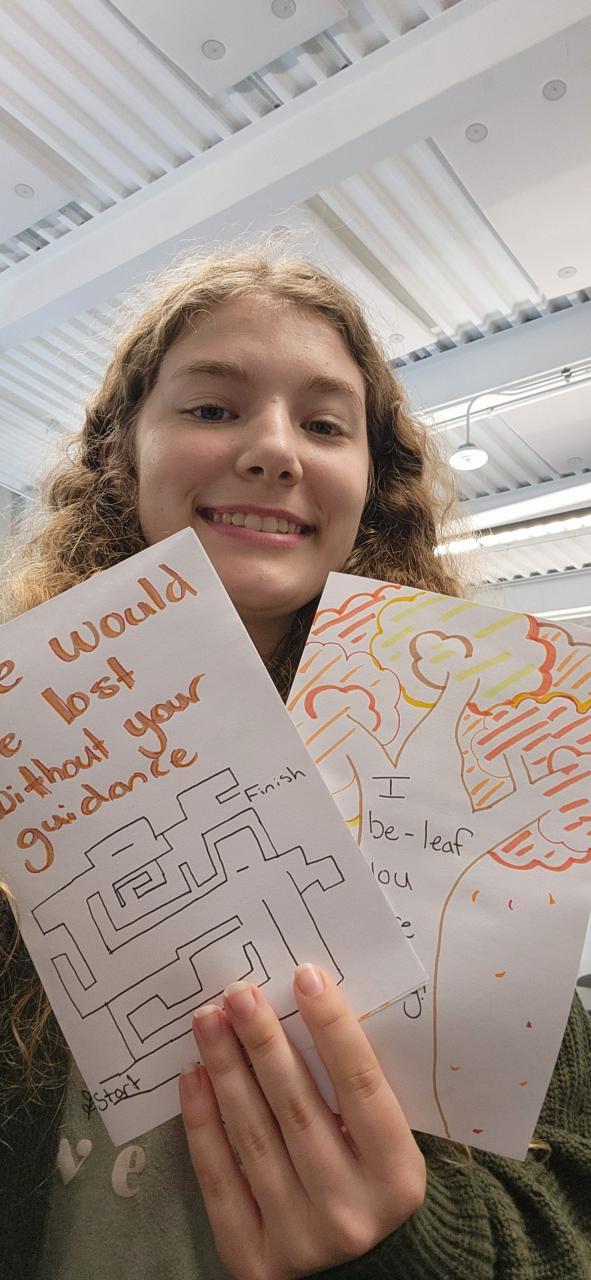 e would
e lost
without your
guidance
Finish
Start
I
be-leaf
ou
e
g!
ve